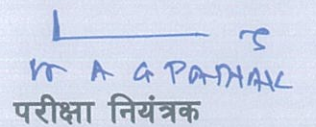 A G PATHAK
परीक्षा नियंत्रक